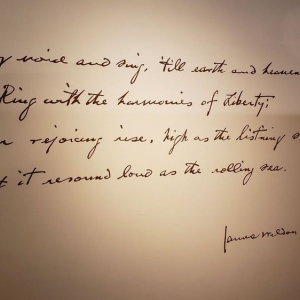 voice and sing, 'till earth and heaven
Ring with the harmonies of Liberty;
rejoicing rise, high as the listning s
it resound loud as the rolling sea.
James Weldon